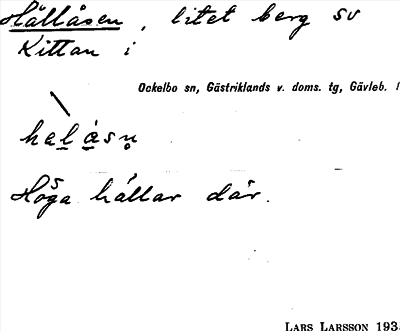 Hällåsen, litet berg sv
Kittan i
Ockelbo sn, Gästriklands v. doms. tg, Gävleb. l
hɛlåsn̥
Höga hällar där.
LARS LARSSON 193